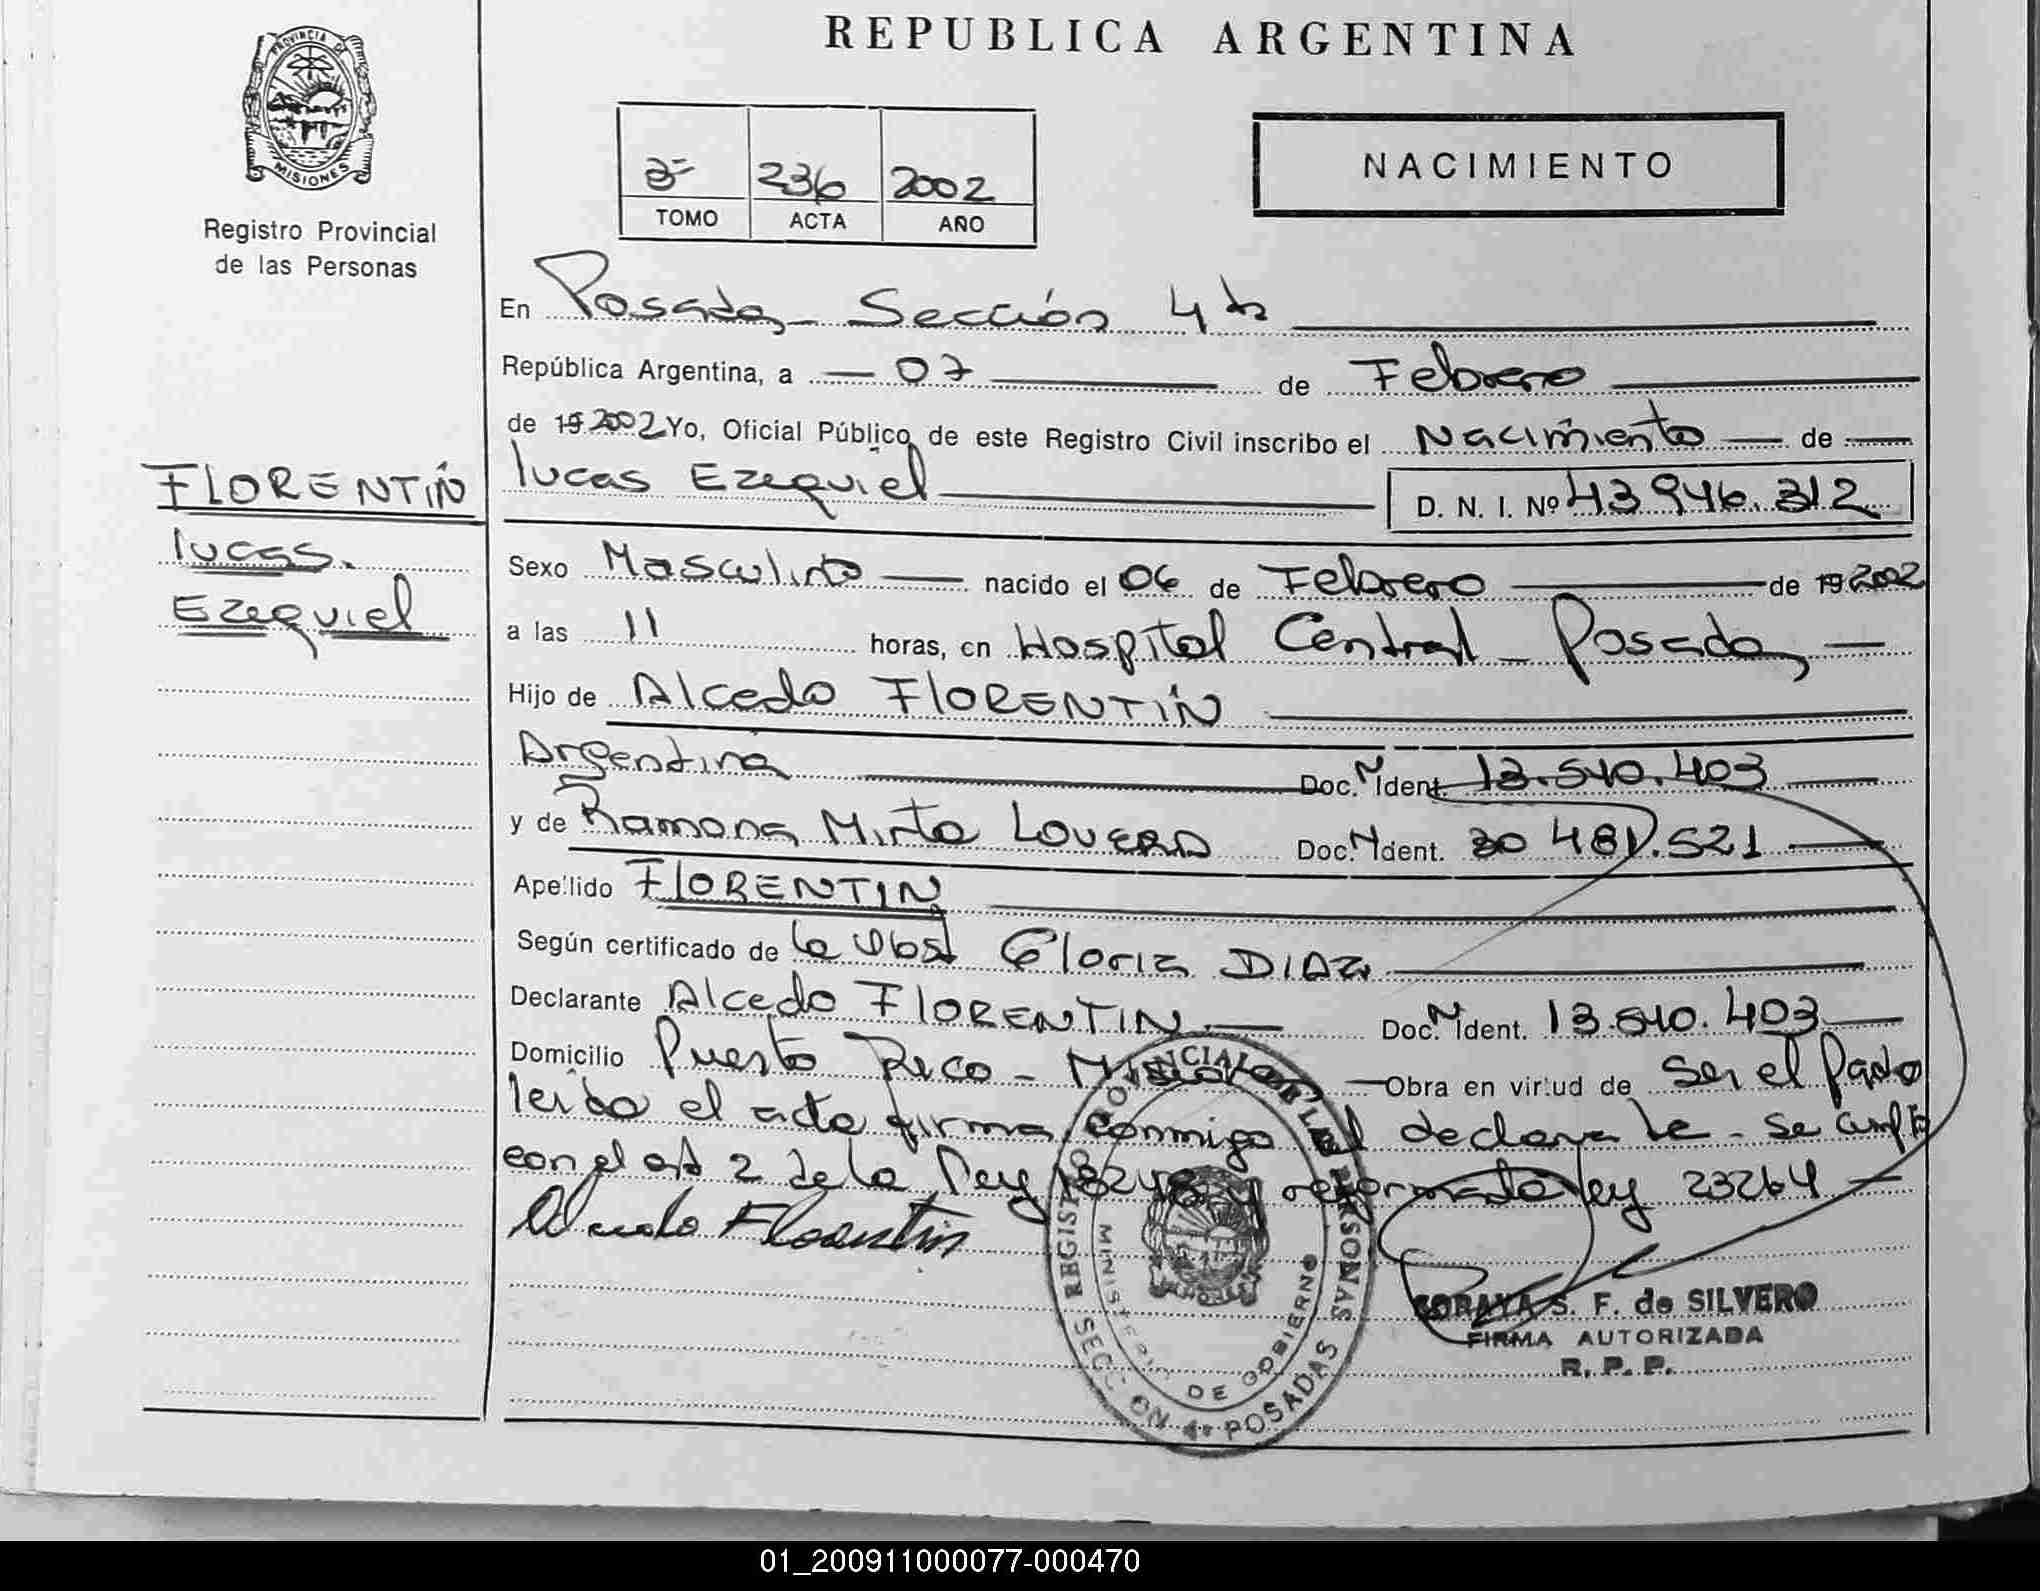 REPUBLICA ARGENTINA
PROVINCIA DE
MISIONES
Registro Provincial
de las Personas
236 2002
TOMO ACTA AÑO
NACIMIENTO
En Posadas - Sección 4ta
República Argentina, a 07 de Febrero
de 19 2002 Yo, Oficial Público de este Registro Civil inscribo el Nacimiento de
FLORENTÍN
Lucas.
Ezequiel
Lucas Ezequiel D. N. I. Nº 43 946.312
Sexo Masculino nacido el 06 de Febrero de 19 2002
a las 11 horas, en Hospital Central - Posadas
Hijo de Alcedo FLORENTÍN
Argentina Doc. N Ident. 13.540.403
y de Ramona Mirta LOVERA Doc. N Ident. 30 481.521
Apellido FLORENTIN
Según certificado de la Obst Gloria DIAZ
Declarante Alcedo FLORENTIN Doc. N Ident. 13.540.403
Domicilio Puerto Rico - Obra en virtud de ser el Padre
leida el acta firma conmigo el declarante - se cumple
con el art 2 de la Ley 18248 y reformada ley 23264
Alcedo Florentin
REGISTRO PROVINCIAL DE LAS PERSONAS
MINISTERIO DE GOBIERNO
SECCION 4ta POSADAS
SORAYA S. F. de SILVERO
FIRMA AUTORIZADA
R. P. P.
01_200911000077-000470